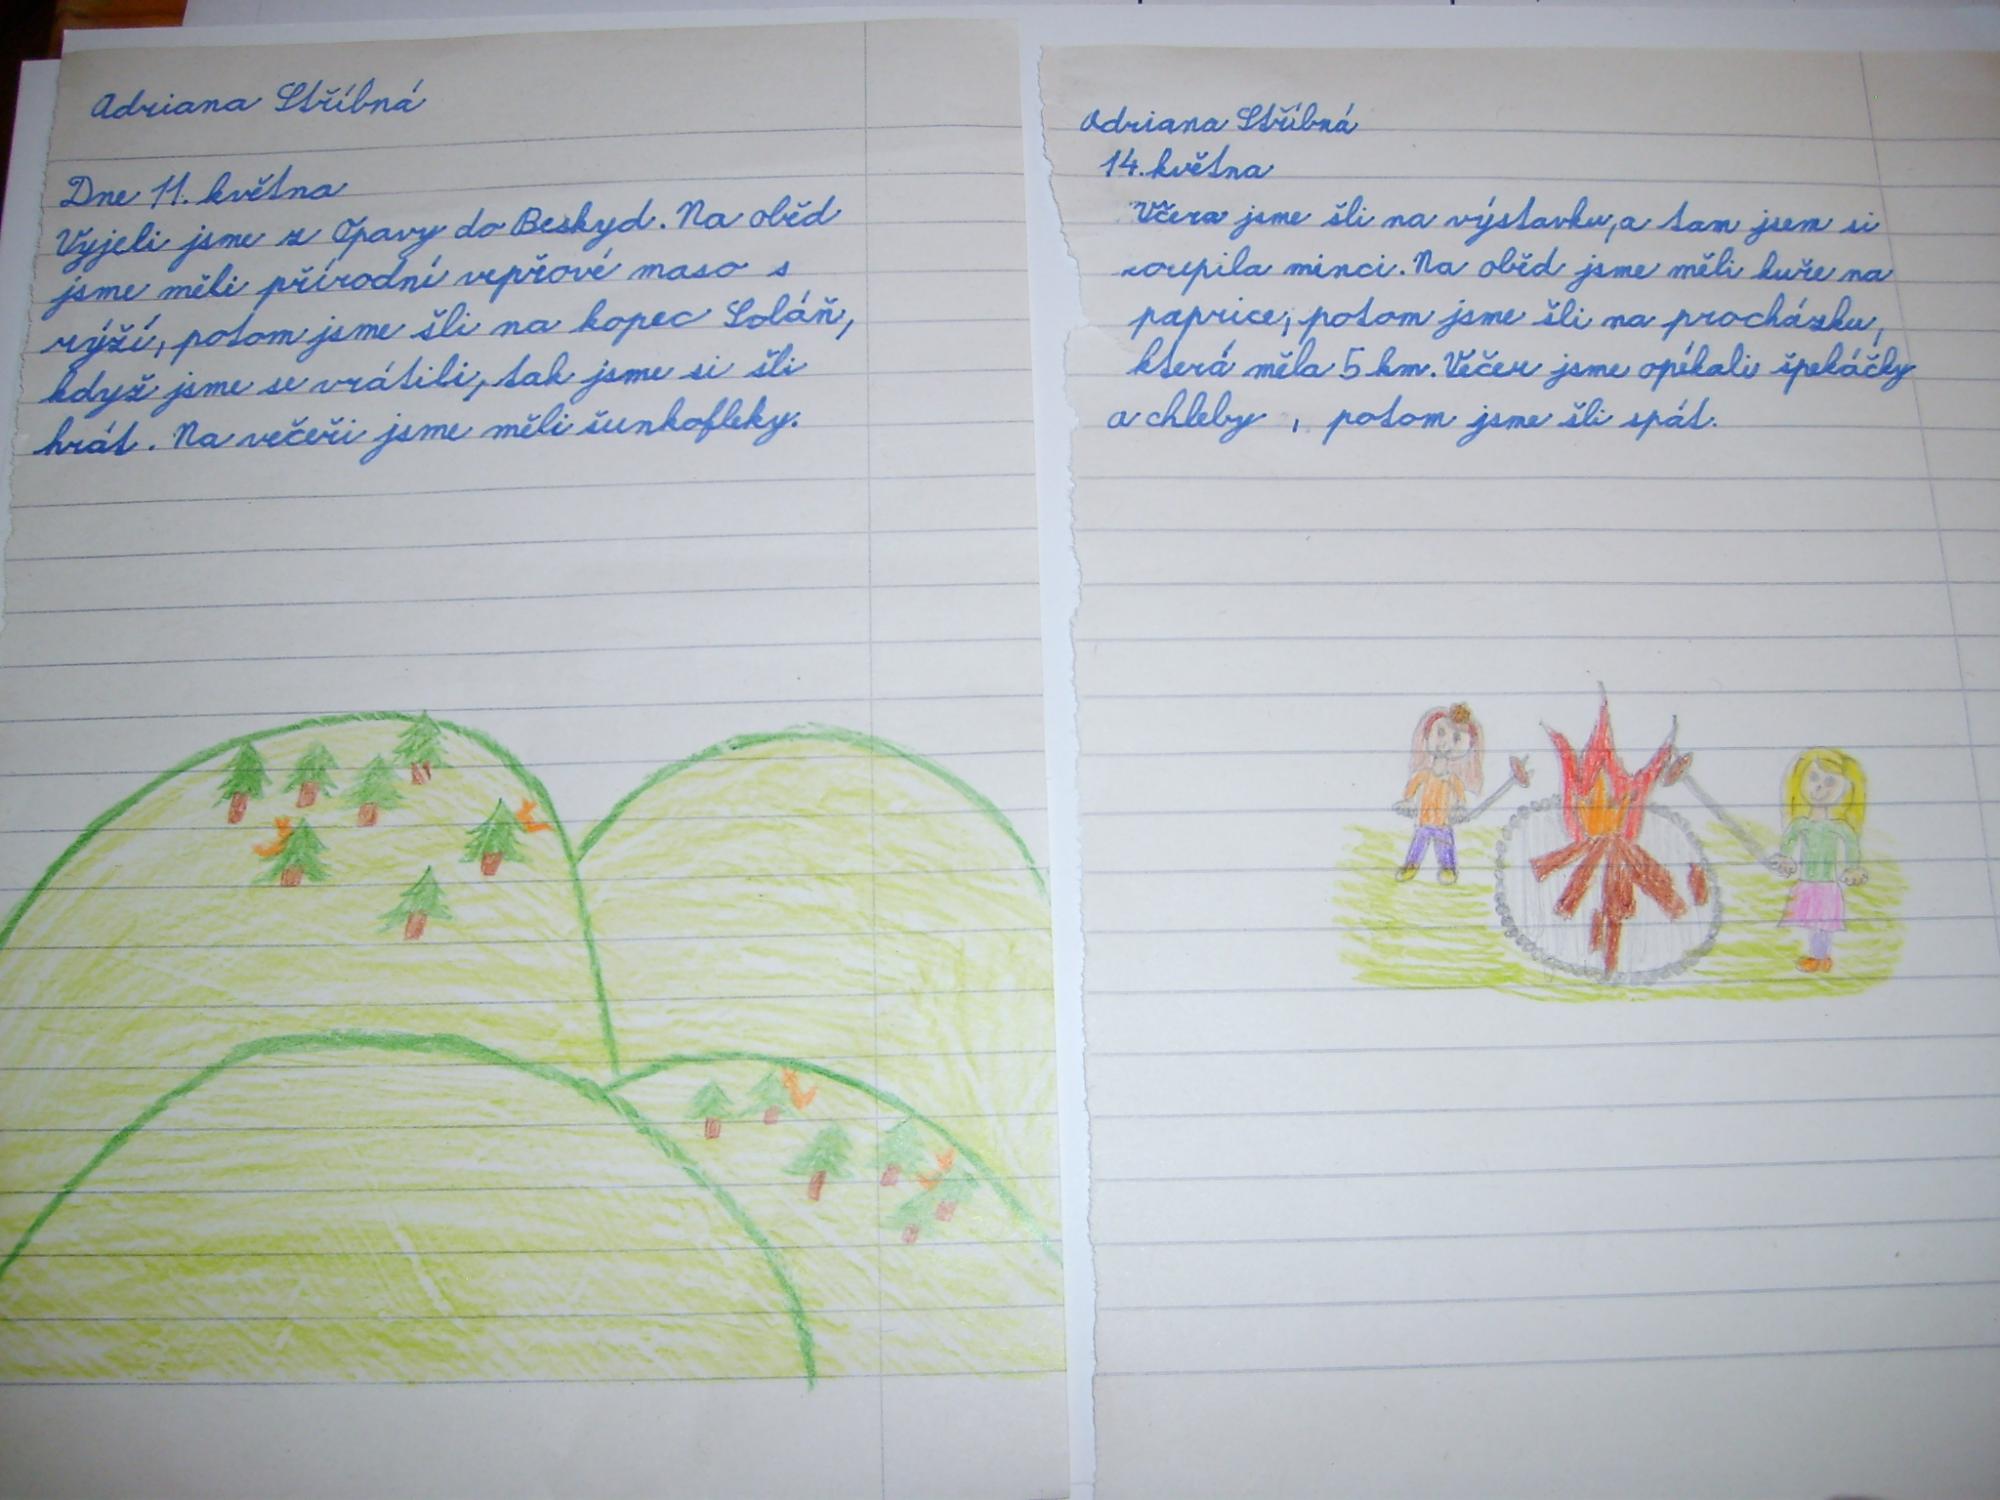 Adriana Stříbná
Dne 11. května
Vyjeli jsme z Opavy do Beskyd. Na oběd
jsme měli přírodní vepřové maso s
rýží, potom jsme šli na kopec Soláň,
když jsme se vrátili, tak jsme si šli
hrát. Na večeři jsme měli šunkofleky.
Adriana Stříbná
14. května
Včera jsme šli na výstavku, a tam jsem si
koupila minci. Na oběd jsme měli kuře na
paprice, potom jsme šli na procházku,
která měla 5 km. Večer jsme opékali špekáčky
a chleby, potom jsme šli spát.